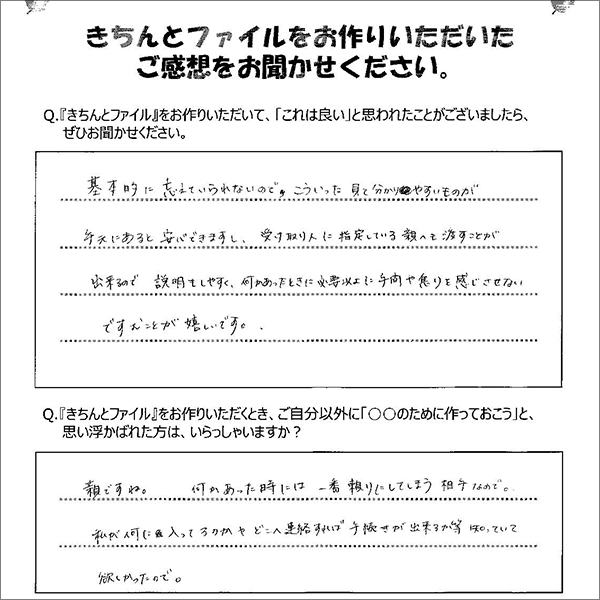 きちんとファイルをお作りいただいた
ご感想をお聞かせください。
Q.『きちんとファイル』をお作りいただいて、「これは良い」と思われたことがございましたら、
ぜひお聞かせください。
基本的に 忘えていられないので、こういった 見て分かりやすいものが
手元にあると 安心できますし、受け取り人に指定している親へも渡すことが
出来るので 説明もしやすく、何かあったときに必要以上に手間や焦りを感じさせない
ですむことが嬉しいです。
Q.『きちんとファイル』をお作りいただくとき、ご自分以外に「〇〇のために作っておこう」と、
思い浮かばれた方は、いらっしゃいますか？
親ですね。 何かあった時には 一番頼りにしてしまう 相手なので。
私が何に入ってるのかや どこへ連絡すれば 手続きが出来るか等 知っていて
欲しかったので。